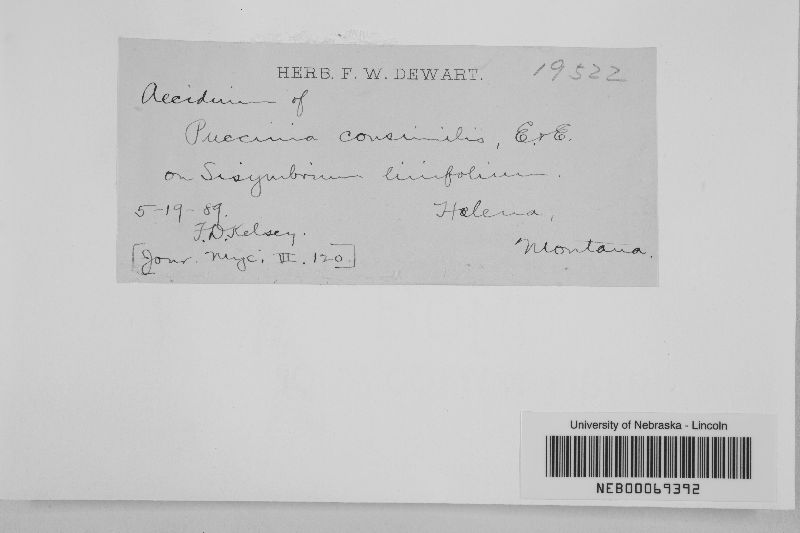 HERB. F. W. DEWART.
19522
Aecidium of
Puccinia consimilis, E. & E.
on Sisymbrium linifolium.
5-19-89.
Helena,
F.D. Kelsey.
Montana.
[Jour. Myc. VI. 120]
University of Nebraska - Lincoln
NEB00069392